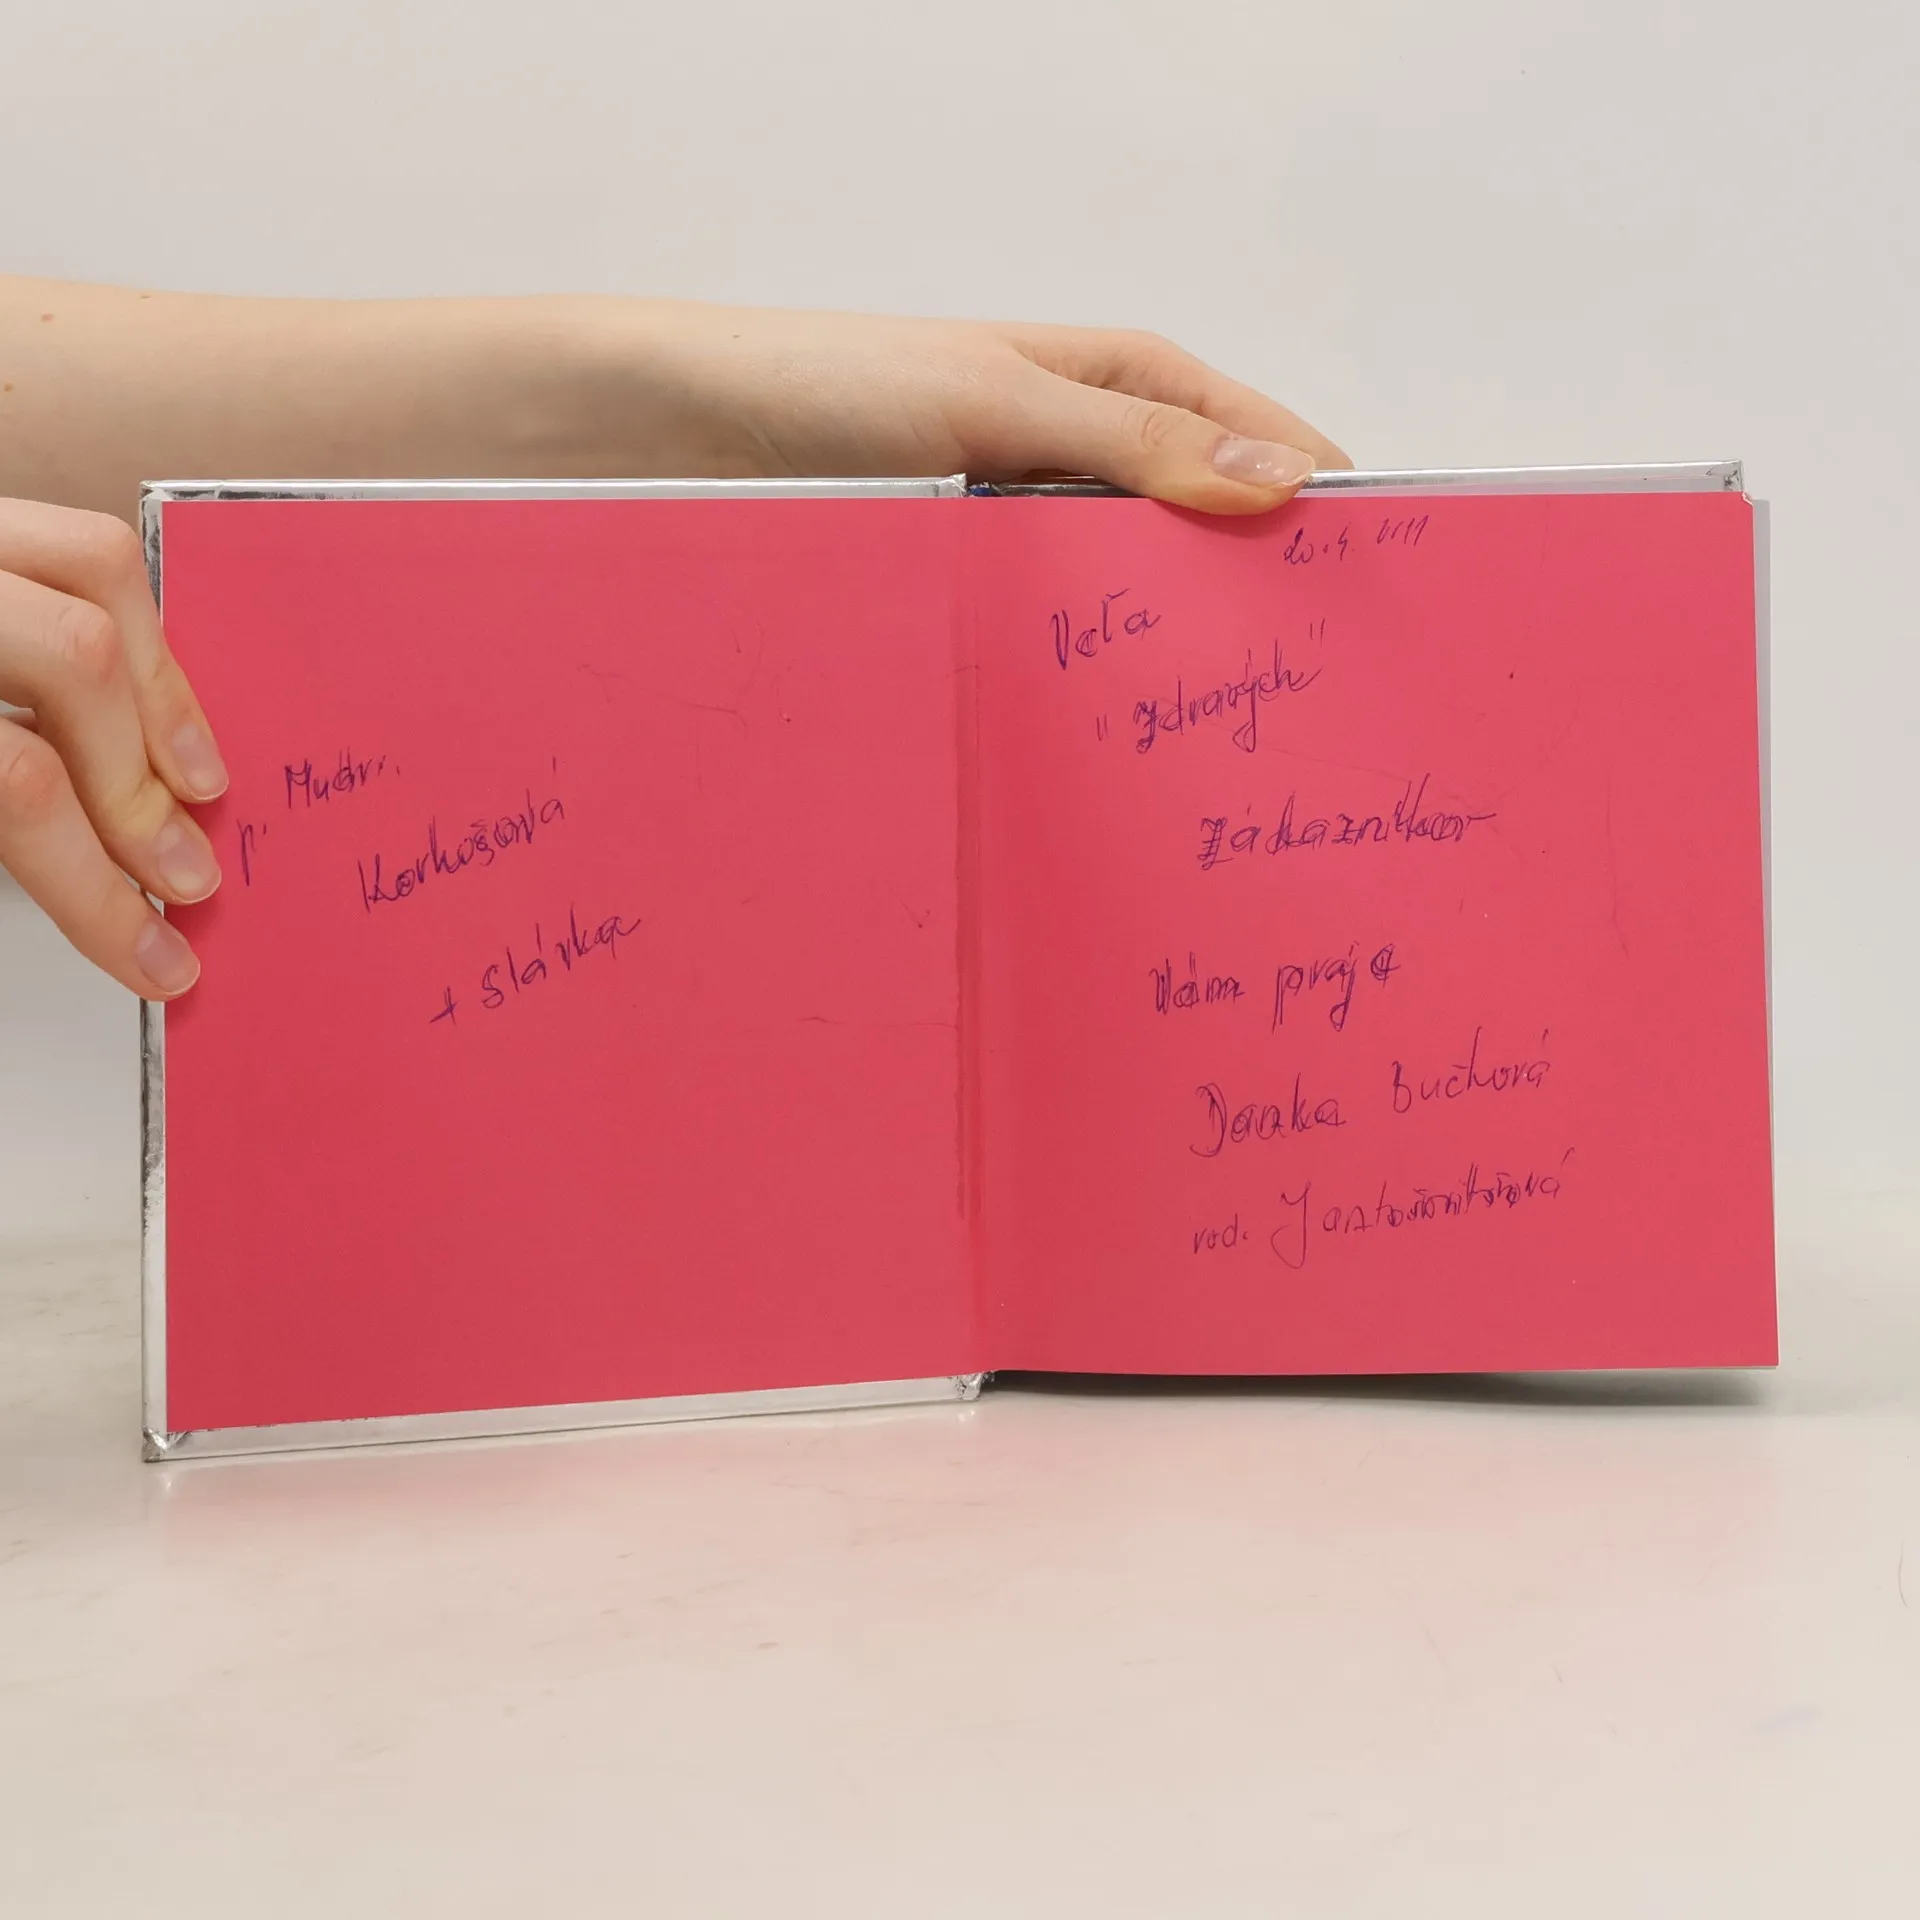 p. Mudr.
Korhošová
+ Slávka
20.4. 2011
Veľa
"zdravých"
zákazníkov
Vám praje
Danka Buchová
rod.